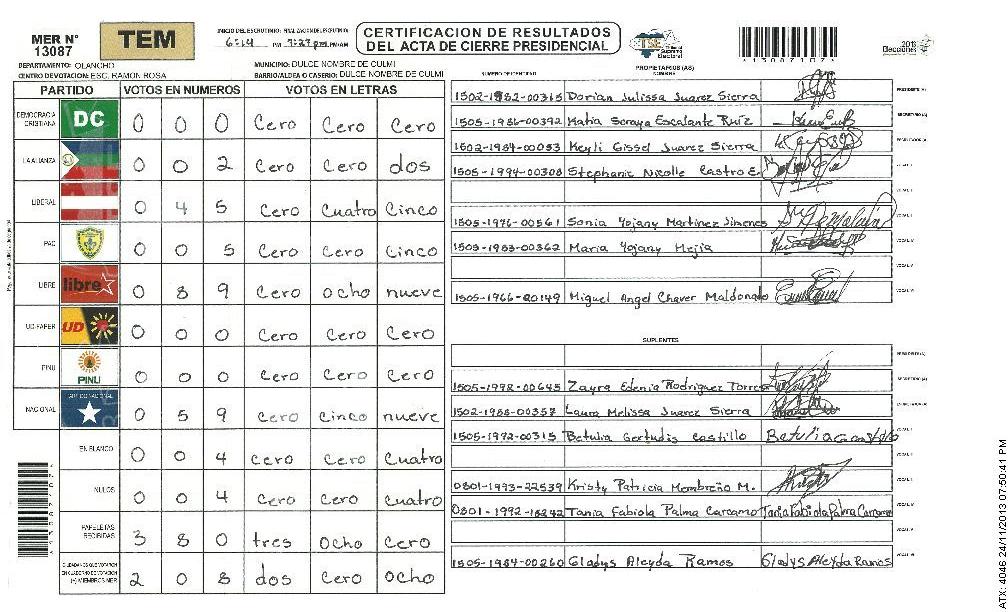 MER N°
13087
TEM
INICIO DEL ESCRUTINIO:
FINALIZACION DEL ESCRUTINIO:
6:14 PM 7:27 pm PM-AM
CERTIFICACION DE RESULTADOS
DEL ACTA DE CIERRE PRESIDENCIAL
TSE Tribunal Supremo Electoral
13087107
2013
Elecciones
DEPARTAMENTO: OLANCHO
MUNICIPIO: DULCE NOMBRE DE CULMI
CENTRO DE VOTACION: ESC. RAMON ROSA
BARRIO/ALDEA O CASERIO: DULCE NOMBRE DE CULMI
PARTIDO VOTOS EN NUMEROS VOTOS EN LETRAS
DEMOCRACIA CRISTIANA DC 0 0 0 Cero Cero Cero
LA ALIANZA 0 0 2 Cero Cero dos
LIBERAL 0 4 5 Cero Cuatro Cinco
PAC 0 0 5 Cero Cero Cinco
LIBRE libre 0 8 9 Cero Ocho nueve
UD-FAPER UD 0 0 0 Cero Cero Cero
PINU PINU 0 0 0 Cero Cero Cero
NACIONAL PARTIDO NACIONAL 0 5 9 Cero Cinco nueve
EN BLANCO 0 0 4 Cero Cero Cuatro
NULOS 0 0 4 Cero Cero Cuatro
PAPELETAS RECIBIDAS 3 8 0 tres Ocho Cero
CIUDADANOS QUE VOTARON EN CUADERNO DE VOTACION (+) MIEMBROS MER 2 0 8 dos Cero Ocho
NUMERO DE IDENTIDAD
PROPIETARIOS (AS)
NOMBRE
1502-1982-00315 Dorian Julissa Juarez Sierra PRESIDENTE (A)
1505-1986-00392 Katia Soraya Escalante Ruiz SECRETARIO (A)
1502-1984-00053 Keyli Gissel Juarez Sierra ESCRUTADOR (A)
1505-1994-00308 Stephanie Nicolle Castro E. VOCAL I
1505-1976-00561 Sonia Yojany Martinez Jimenes
1505-1983-00362 Maria Yojany Mejia
1505-1966-20149 Miguel Angel Chaver Maldonado
SUPLENTES
PRESIDENTE (A)
1505-1992-00645 Zayra Edenia Rodriguez Torres SECRETARIO (A)
1502-1988-00357 Laura Melissa Juarez Sierra ESCRUTADOR (A)
1505-1972-00315 Betulia Gertudis Castillo
0801-1993-22539 Kristy Patricia Membreño M.
0801-1992-18242 Tania Fabiola Palma Carcamo Tania Fabiola Palma Carcamo
1505-1984-00260 Gladys Aleyda Ramos Gladys Aleyda Ramos
13087107
ATX: 4046 24/11/2013 07:50:41 PM